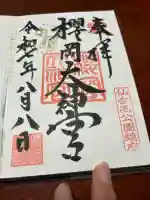 奉拝
櫻岡大神宮
令和六年八月八日
仙台西公園鎮座